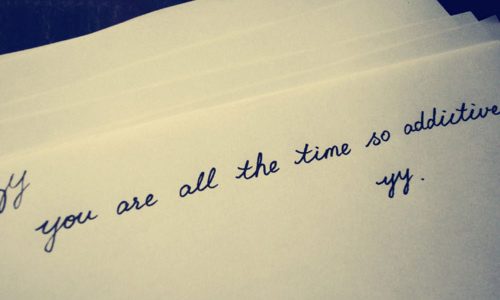 you are all the time so addictive
yy.